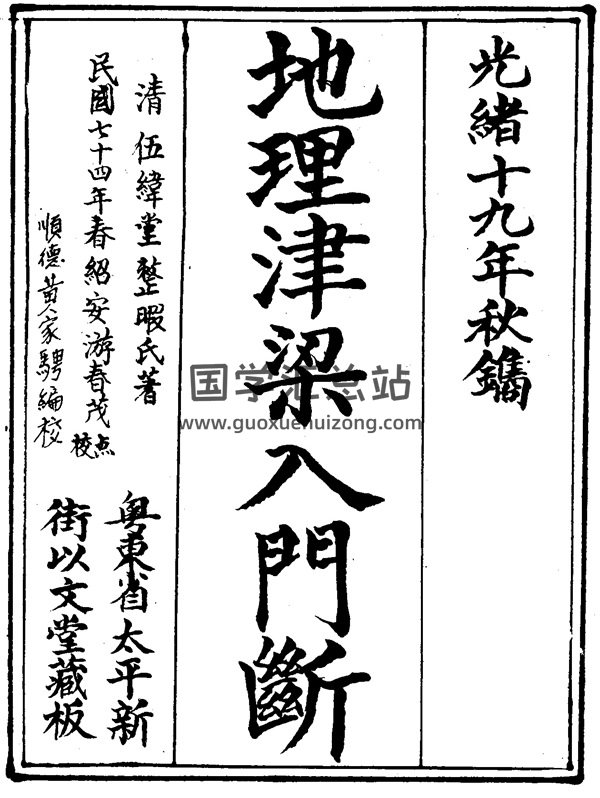 光緒十九年秋鐫
地理津梁入門斷
清 伍緯堂整暇氏著
民國七十四年春紹安游春茂点校
順德黄家騁編校
粤東省太平新
街以文堂藏板
国学汇总站
www.guoxuehuizong.com